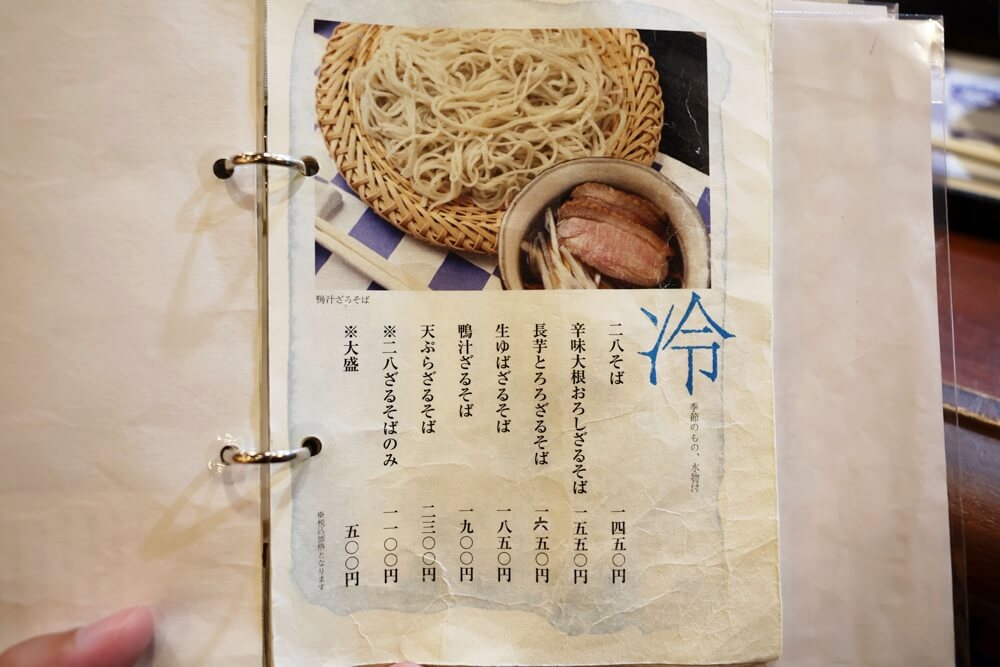 鴨汁ざるそば
冷
季節のもの、水物付
二八そば 一四五〇円
辛味大根おろしざるそば 一五五〇円
長芋とろろざるそば 一六五〇円
生ゆばざるそば 一八五〇円
鴨汁ざるそば 一九〇〇円
天ぷらざるそば 二三〇〇円
※二八ざるそばのみ 一一〇〇円
※大盛 五〇〇円
※税込価格となります